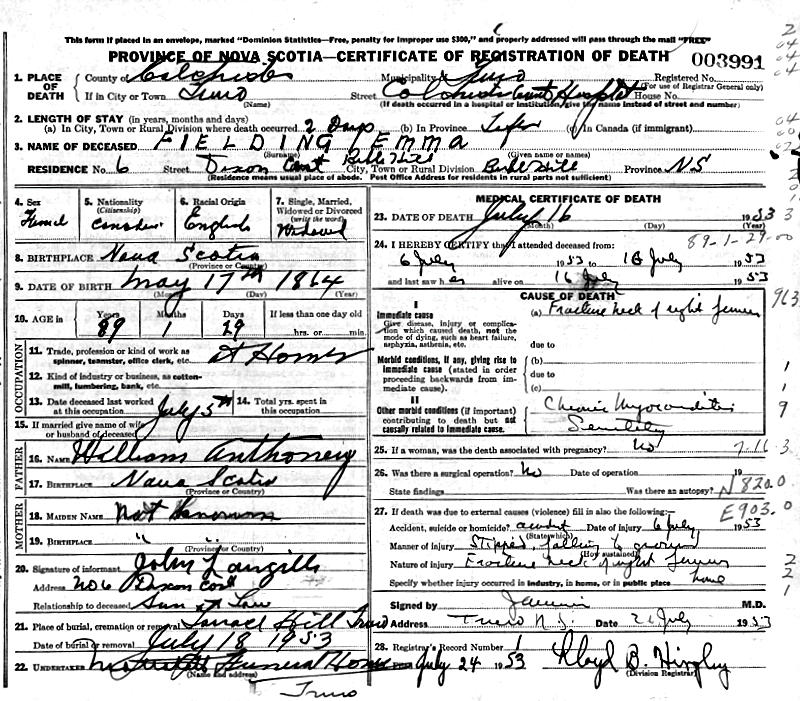 This form if placed in an envelope, marked "Dominion Statistics—Free, penalty for improper use $300," and properly addressed will pass through the mail "FREE"
PROVINCE OF NOVA SCOTIA—CERTIFICATE OF REGISTRATION OF DEATH
003991
1. PLACE OF DEATH County of Colchester Municipality of Truro Registered No.
(For use of Registrar General only)
If in City or Town Truro Street Colchester County Hospital House No.
(Name) (If death occurred in a hospital or institution, give the name instead of street and number)
2. LENGTH OF STAY (in years, months and days)
(a) In City, Town or Rural Division where death occurred 2 Days (b) In Province Life (c) In Canada (if immigrant)
3. NAME OF DECEASED FIELDING EMMA
(Surname) (Given name or names)
RESIDENCE No. 6 Street Dixon Court Bible Hill City, Town or Rural Division Bible Hill Province NS
(Residence means usual place of abode. Post Office Address for residents in rural parts not sufficient)
4. Sex Femal
5. Nationality (Citizenship) Canadian
6. Racial Origin English
7. Single, Married, Widowed or Divorced (write the word) Widowed
8. BIRTHPLACE Nova Scotia
(Province or Country)
9. DATE OF BIRTH May 17th 1864
(Month) (Day) (Year)
10. AGE in Years 89 Months 1 Days 29 If less than one day old hrs. or min.
OCCUPATION
11. Trade, profession or kind of work as spinner, teamster, office clerk, etc. At Home
12. Kind of industry or business, as cotton-mill, lumbering, bank, etc.
13. Date deceased last worked at this occupation July 5th 14. Total yrs. spent in this occupation
15. If married give name of wife or husband of deceased
FATHER
16. NAME William Anthoney
17. BIRTHPLACE Nova Scotia
(Province or Country)
MOTHER
18. MAIDEN NAME Not Known
19. BIRTHPLACE " "
(Province or Country)
20. Signature of informant John Langille
Address No 6 Dixon Court
Relationship to deceased Son in Law
21. Place of burial, cremation or removal Hill Truro
Date of burial or removal July 18 1953
22. UNDERTAKER Funeral Home
(Name and address)
Truro
MEDICAL CERTIFICATE OF DEATH
23. DATE OF DEATH July 16 1953
(Month) (Day) (Year)
24. I HEREBY CERTIFY that I attended deceased from: 89-1-29-00
6 July 1953 to 16 July 1953
and last saw h er alive on 16 July 1953
CAUSE OF DEATH
I
Immediate cause (a) Fracture neck of right femur
Give disease, injury or complication which caused death, not the mode of dying, such as heart failure, asphyxia, asthenia, etc.
due to
Morbid conditions, if any, giving rise to immediate cause (stated in order proceeding backwards from immediate cause).
(b)
due to
(c)
II
Other morbid conditions (if important) contributing to death but not causally related to immediate cause.
Chronic Myocarditis
Senility
25. If a woman, was the death associated with pregnancy? No
26. Was there a surgical operation? No Date of operation 19
State findings Was there an autopsy? N820.0
27. If death was due to external causes (violence) fill in also the following:— E903.0
Accident, suicide or homicide? accident Date of injury 6 July 1953
(State which)
Manner of injury Slipped falling to ground
(How sustained)
Nature of injury Fracture neck of right femur
Specify whether injury occurred in industry, in home, or in public place home
Signed by M.D.
Address Truro N.S. Date July 1953
28. Registrar's Record Number 1
July 24 1953 Lloyd B.
(Division Registrar)